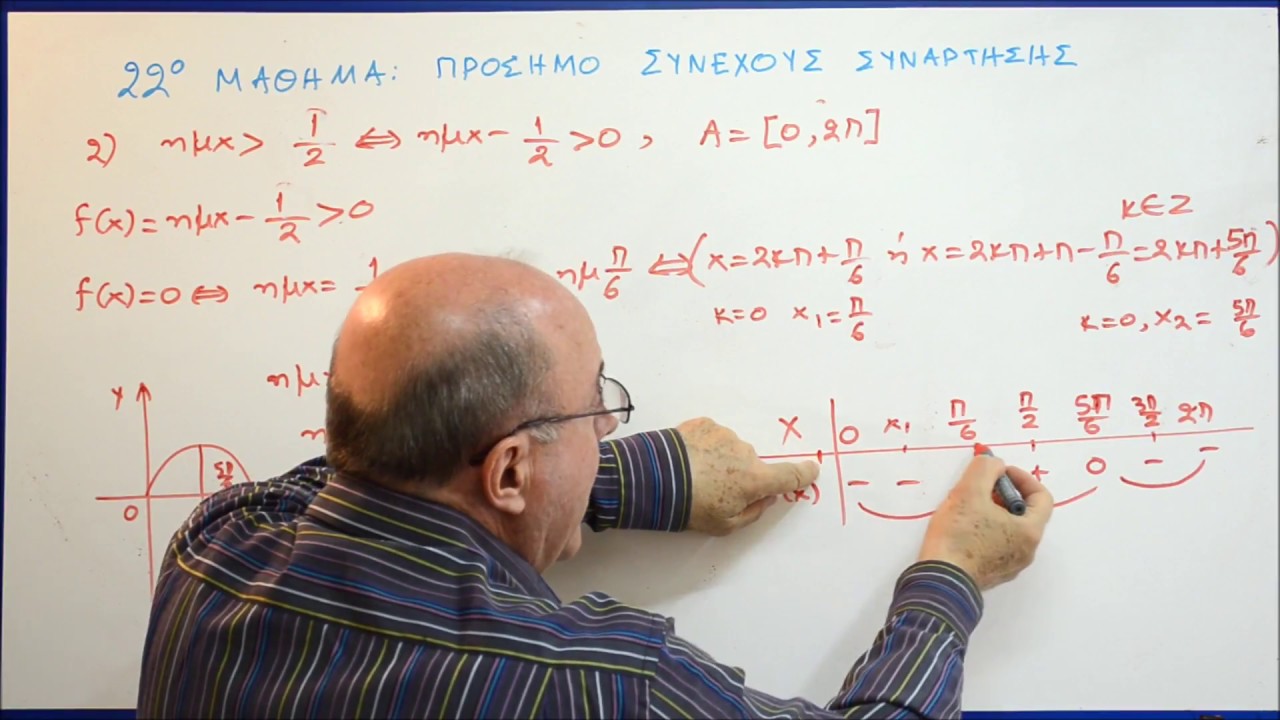 22º ΜΑΘΗΜΑ: ΠΡΟΣΗΜΟ ΣΥΝΕΧΟΥΣ ΣΥΝΑΡΤΗΣΗΣ
2) ημx > 1/2 ⇔ ημx - 1/2 > 0, A = [0, 2π]
f(x) = ημx - 1/2 > 0
κ∈Z
f(x) = 0 ⇔ ημx = 1 ημ π/6 ⇔ (x = 2κπ + π/6 ή x = 2κπ + π - π/6 = 2κπ + 5π/6)
κ=0 x₁ = π/6 κ=0, x₂ = 5π/6
ημ
y
x 0 x₁ π/6 π/2 5π/6 3π/2 2π
(x) - - + 0 - -
5π
0